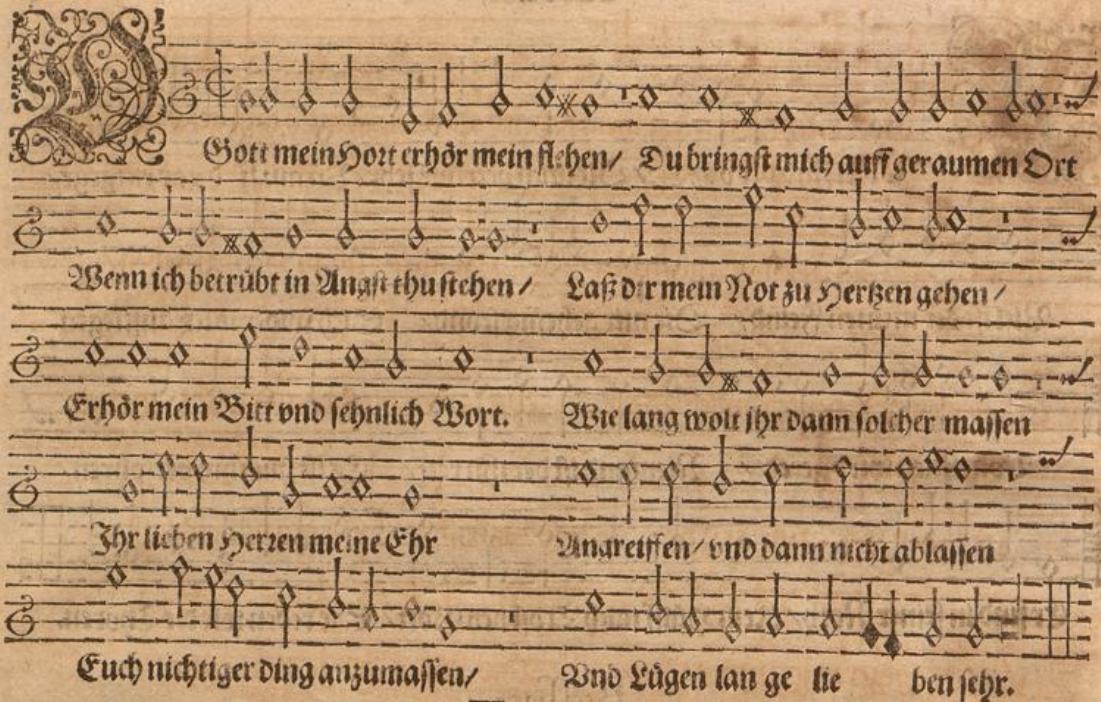 O Gott mein Hort erhör mein flehen/ Du bringst mich auff geraumen Ort
Wenn ich betrübt in Angst thu stehen/ Laß dir mein Not zu Hertzen gehen/
Erhör mein Bitt vnd sehnlich Wort. Wie lang wolt jhr dann solcher massen
Ihr lieben Herren meine Ehr Angreiffen/ vnd dann nicht ablassen
Euch nichtiger ding anzumassen/ Vnd Lügen lan ge lie ben sehr.